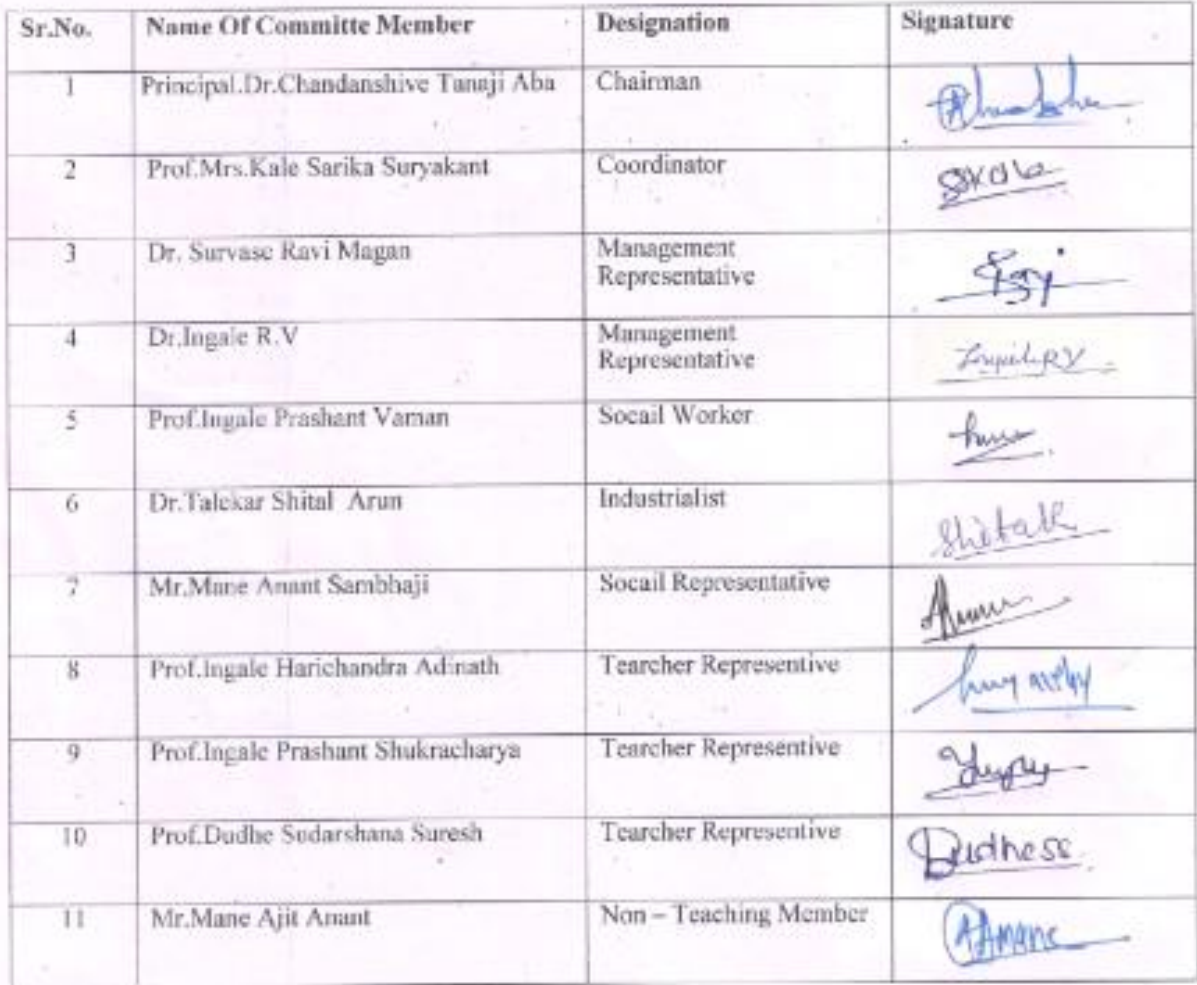 Sr.No. Name Of Committe Member Designation Signature
1 Principal.Dr.Chandanshive Tanaji Aba Chairman
2 Prof.Mrs.Kale Sarika Suryakant Coordinator SKale
3 Dr. Survase Ravi Magan Management
Representative
4 Dr.Ingale R.V Management
Representative IngaleRV
5 Prof.Ingale Prashant Vaman Socail Worker
6 Dr.Talekar Shital Arun Industrialist
7 Mr.Mane Anant Sambhaji Socail Representative
8 Prof.Ingale Harichandra Adinath Tearcher Representive
9 Prof.Ingale Prashant Shukracharya Tearcher Representive
10 Prof.Dudhe Sudarshana Suresh Tearcher Representive Dudhess
11 Mr.Mane Ajit Anant Non – Teaching Member AAMane